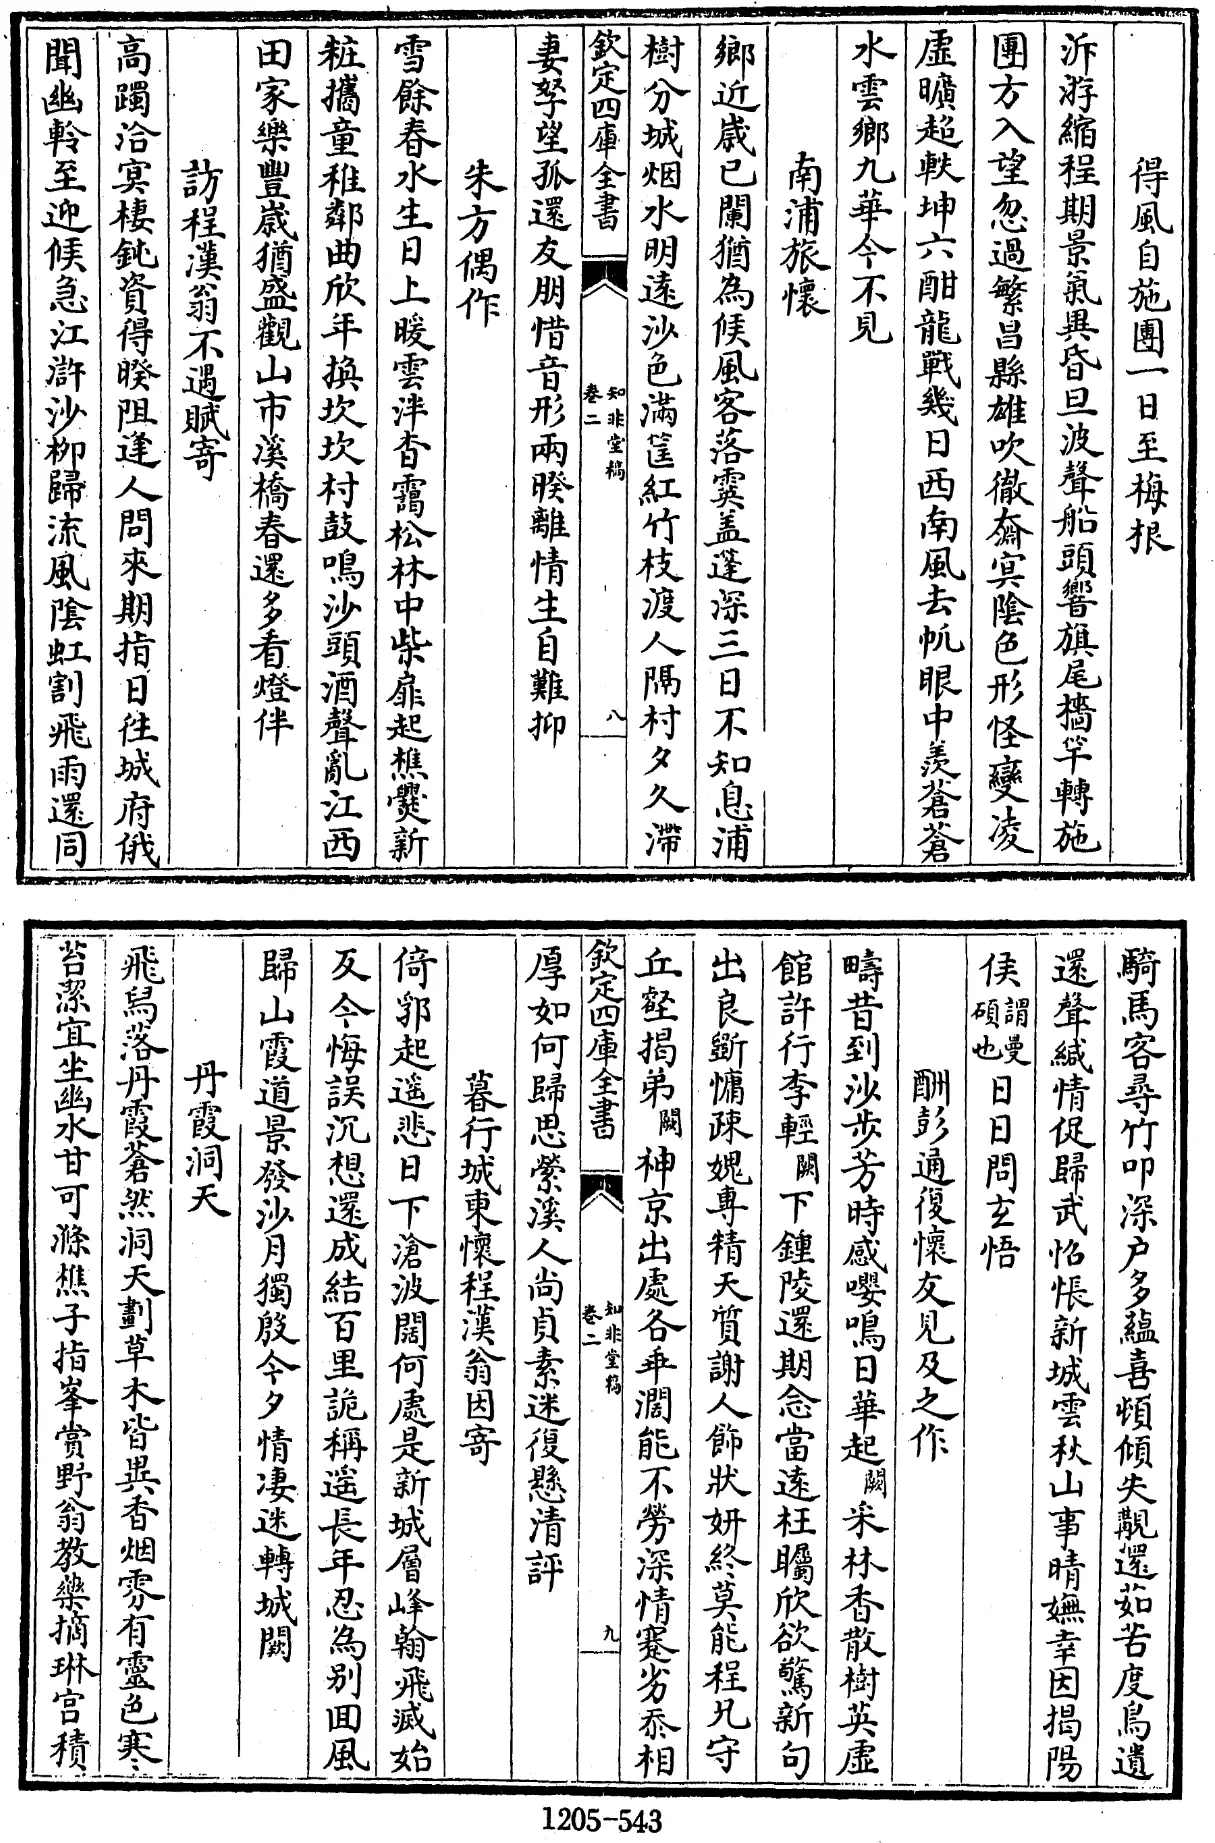 得風自施團一日至梅根
泝游縮程期景氣異昏旦波聲船頭響旗尾檣竿轉施
團方入望忽過繁昌縣雄吹徹奫㝠陰色形怪變凌
虛曠超軼坤六酣龍戰幾日西南風去帆眼中羨蒼蒼
水雲鄉九華今不見
南浦旅懷
鄉近歲已闌猶為候風客落霙盖蓬深三日不知息浦
樹分城烟水明遠沙色滿筐紅竹枝渡人隔村夕久滯
欽定四庫全書
知非堂稿
卷二
八
妻孥望孤還友朋惜音形兩暌離情生自難抑
朱方偶作
雪餘春水生日上暖雲泮杳靄松林中柴扉起樵爨新
粧攜童稚鄰曲欣年換坎坎村鼓鳴沙頭酒聲亂江西
田家樂豐歲猶盛觀山市溪橋春還多看燈伴
訪程漢翁不遇賦寄
高躅洽㝠棲鈍資得暌阻逢人問來期指日往城府俄
聞幽軨至迎候急江滸沙柳歸流風陰虹割飛雨還同
騎馬客尋竹叩深户多藴喜頻傾失覯還茹苦度鳥遺
還聲緘情促歸武怊悵新城雲秋山事晴嫵幸因揭陽
侯謂曼碩也日日問玄悟
酬彭通復懷友見及之作
疇昔到沙步芳時感嚶鳴日華起闕采林香散樹英虛
館許行李輕闕下鍾陵還期念當遠枉矚欣欲驚新句
出良斵慵疎媿專精天質謝人飾狀妍終莫能程凡守
丘壑揭弟闕神京出處各乖濶能不勞深情蹇劣忝相
欽定四庫全書
知非堂稿
卷二
九
厚如何歸思縈溪人尚貞素迷復懸清評
暮行城東懷程漢翁因寄
倚郭起遥悲日下滄波闊何處是新城層峰翰飛滅始
反今悔誤沉想還成結百里詭稱遥長年忍為别回風
歸山霞道景發沙月獨啟今夕情凄迷轉城闕
丹霞洞天
飛舄落丹霞蒼然洞天劃草木皆異香烟雰有靈色寒
苔潔宜坐幽水甘可滌樵子指峯賞野翁教藥摘琳宫積
1205-543